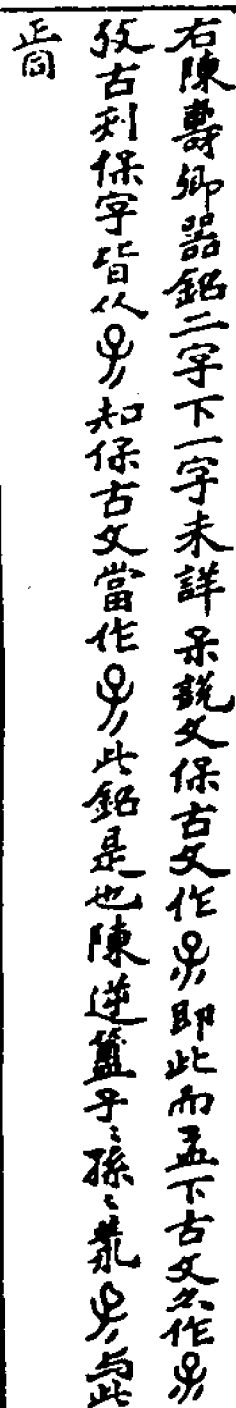 右陳壽卿器銘二字下一字未詳呆說文保古文作即此而孟下古文亦作
攷古刻保字皆从知保古文當作此銘是也陳逆簠子〻孫〻羕與此
正同